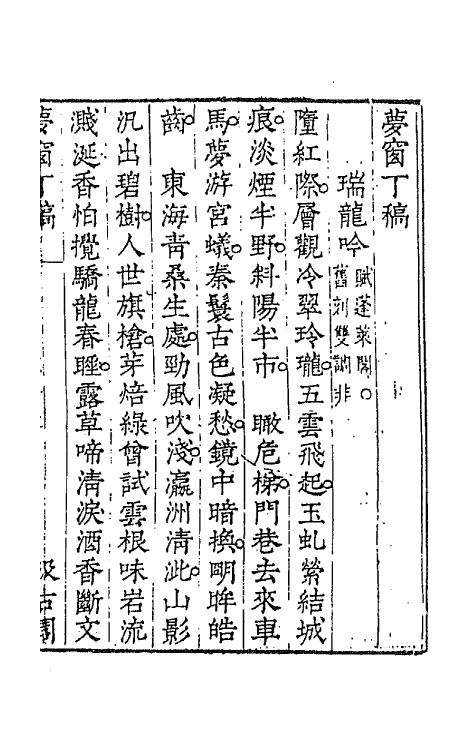 夢窗丁稿
瑞龍吟 賦蓬萊閣。
舊刻雙調非
墮紅際。層觀冷翠玲瓏。五雲飛起。玉虬縈結城
痕。淡煙半野。斜陽半市。　瞰危梯。門巷去來車
馬。夢游宮蟻。秦鬟古色凝愁。鏡中暗換。明眸皓
齒。　東海靑桑生處。勁風吹淺。瀛洲淸泚。山影
汎出碧樹。人世旗槍。芽焙綠曾試雲根味岩流
濺涎香怕攪驕龍春睡。露草啼淸淚酒香斷文
夢窗丁稿
汲古閣